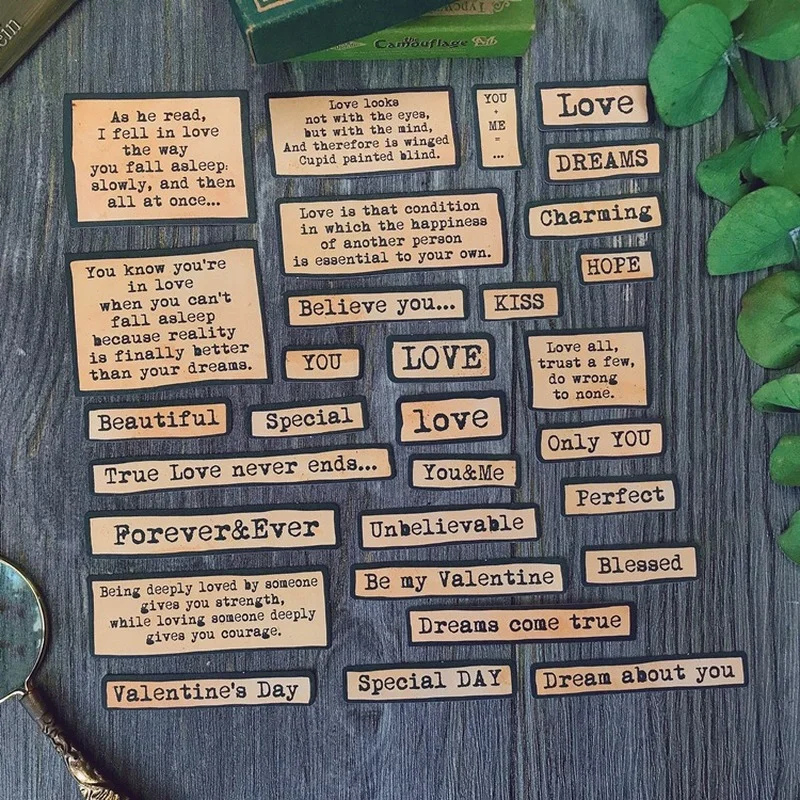 ein
Camouflage
As he read,
I fell in love
the way
you fall asleep:
slowly, and then
all at once...
Love looks
not with the eyes,
but with the mind,
And therefore is winged
Cupid painted blind.
YOU
+
ME
=
...
Love
DREAMS
Love is that condition
in which the happiness
of another person
is essential to your own.
Charming
HOPE
You know you're
in love
when you can't
fall asleep
because reality
is finally better
than your dreams.
Believe you...
KISS
YOU
LOVE
Love all,
trust a few,
do wrong
to none.
Beautiful
Special
love
Only YOU
True Love never ends...
You&Me
Perfect
Forever&Ever
Unbelievable
Blessed
Being deeply loved by someone
gives you strength,
while loving someone deeply
gives you courage.
Be my Valentine
Dreams come true
Valentine's Day
Special DAY
Dream about you